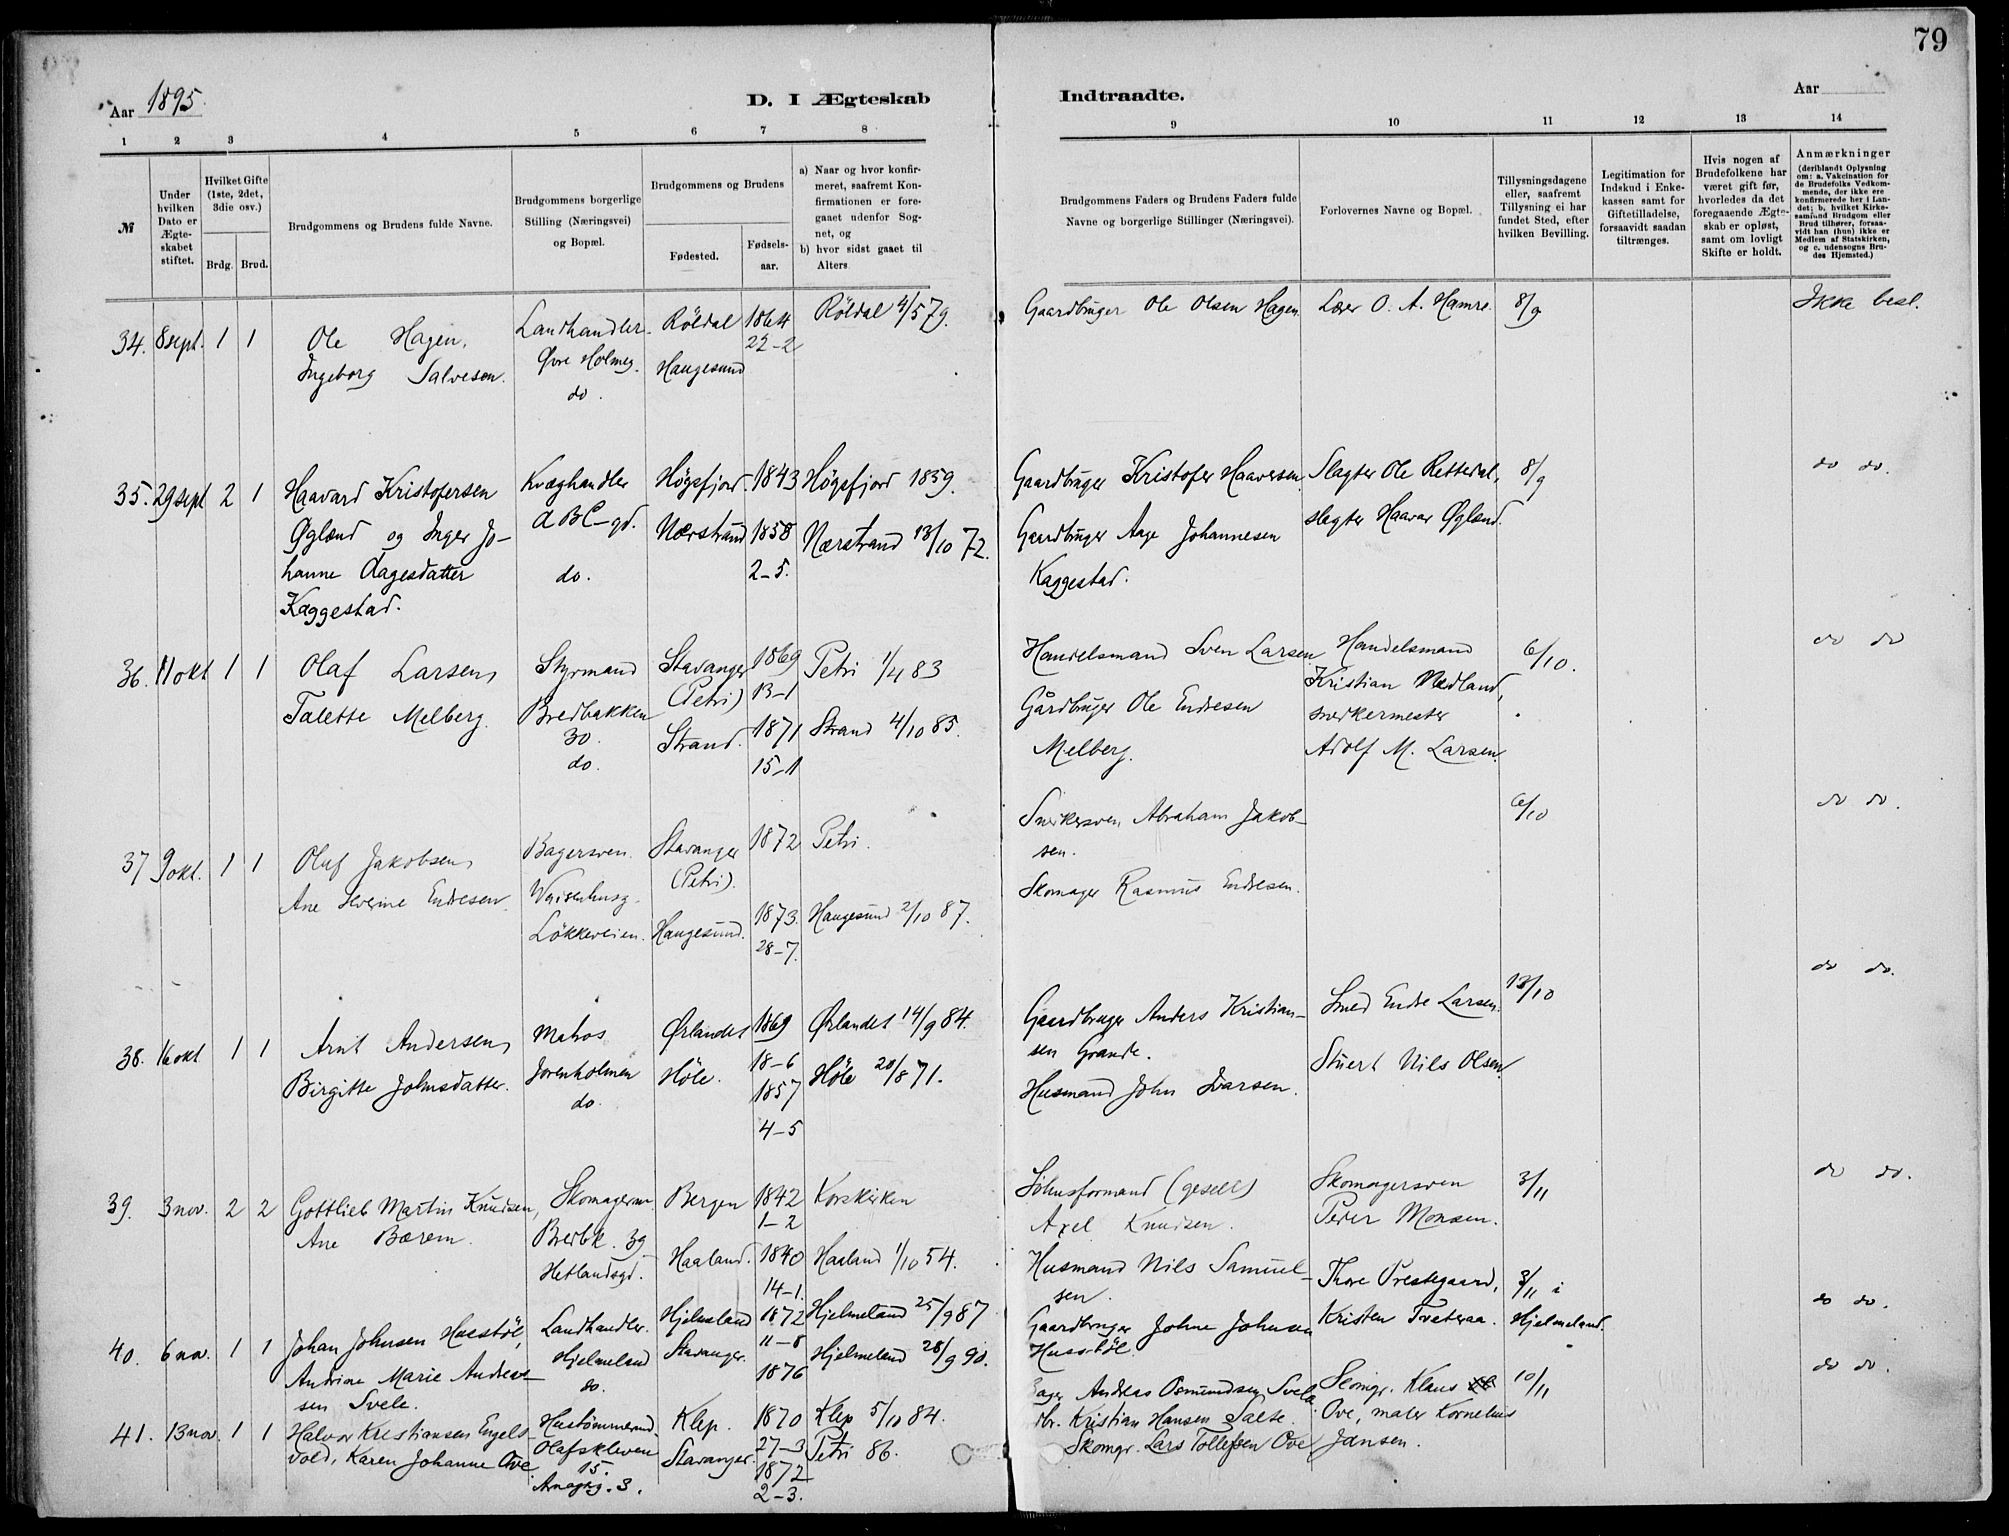 79
Aar 1895.
D. I Ægteskab
Indtraadte.
Aar
1 2 3 4 5 6 7 8
9 10 11 12 13 14
№
Under hvilken Dato er Ægteskabet stiftet.
Hvilket Gifte (1ste, 2det, 3die osv.)
Brdg. Brud.
Brudgommens og Brudens fulde Navne.
Brudgommens borgerlige Stilling (Næringsvei) og Bopæl.
Brudgommens og Brudens
Fødested.
Fødsels-aar.
a) Naar og hvor konfirmeret, saafremt Konfirmationen er foregaaet udenfor Sognet, og
b) hvor sidst gaaet til Alters
Brudgommens Faders og Brudens Faders fulde Navne og borgerlige Stillinger (Næringsvei).
Forlovernes Navne og Bopæl.
Tillysningsdagene eller, saafremt Tillysning ei har fundet Sted, efter hvilken Bevilling.
Legitimation for Indskud i Enkekassen samt for Giftetilladelse, forsaavidt saadan tiltrænges.
Hvis nogen af Brudefolkene har været gift før, hvorledes da det foregaaende Ægteskab er opløst, samt om lovligt Skifte er holdt.
Anmærkninger
(deriblandt Oplysning om: a. Vakcination for de Brudefolks Vedkommende, der ikke ere konfirmerede her i Landet; b. hvilket Kirkesamfund Brudgom eller Brud tilhører, forsaavidt han (hun) ikke er Medlem af Statskirken, og c. udensogns Brudes Hjemsted.)
34. 8 sept. 1 1
Ole Hagen,
Ingeborg Salvesen.
Landhandler.
Øvre Holmeg.
do.
Röldal 1864
22-2
Haugesund
Röldal 4/5 79.
Gaardbruger Ole Olsen Hagen.
Lærer O. A. Hamre.
8/9
Ikke besl.
35. 29 sept 2 1
Haavard Kristofersen
Øglænd og Inger Jo-
hanne Aagesdatter
Kaggestad.
Kvæghandler
ABC-gd.
do.
Högsfjord 1843
Nærstrand 1858
2-5.
Högsfjord 1859.
Nærstrand 13/10 72.
Gaardbruger Kristofer Haaversen.
Gaardbruger Aage Johannesen
Kaggestad.
Slagter Ole Rettedal,
slagter Haavar Øglænd.
8/9
do do.
36. 11 okt 1 1
Olaf Larsen,
Talette Melberg.
Styrmand
Bredbakken
30.
do.
Stavanger
(Petri)
Strand.
1869
13-1
1871
15-1
Petri 1/4 83
Strand 4/10 85.
Handelsmand Sven Larsen
Gårdbruger Ole Endresen
Melberg.
Handelsmand
Kristian Nedland,
snekkermester
Adolf M. Larsen.
6/10.
do do
37 9 okt. 1 1
Oluf Jakobsen,
Ane Severine Endresen.
Bagersven.
Waisenhusg.
Lökkeveien.
Stavanger
(Petri).
Haugesund.
1872
1873
28-7.
Petri.
Haugesund 2/10 87.
Snekkersven Abraham Jakob-
sen.
Skomager Rasmus Endresen.
6/10
do do.
38. 16 okt 1 1
Arnt Andersen,
Birgitte Johnsdatter.
Matros
Jorenholmen
do.
Ørlandet
Höle.
1869
18-6
1857
4-5
Ørlandet 14/9 84.
Höle 20/8 71.
Gaardbruger Anders Kristian-
sen Grande.
Husmand John Ivarsen.
Smed Endre Larsen.
Stuert Nils Olsen
13/10
do do.
39. 3 nov. 2 2
Gottlieb Martin Knudsen,
Ane Bærem.
Skomagersven
Bredbk. 39
Hetlandsgd.
Bergen
Haaland.
1842
1-2
1840
14-1.
Korskirken
Haaland 1/10 54.
Axel Knudsen.
Husmand Nils Samuel-
sen.
Skomagersven
Peder Monsen.
3/11
do do.
40. 6 nov. 1 1
Johan Johnsen
Andrine Marie Andreas-
sen Svele.
Landhandler.
Hjelmeland
do.
Hjelmeland
Stavanger.
1872
11-8
1876
Hjelmeland 25/9 87
Hjelmeland 28/9 90.
Gaardbruger Johne Johnsen
Andreas Osmundsen Svele
Thore Prestegaard,
Kristen Tveteraa.
3/11 i
Hjelmeland.
do do.
41. 13 nov. 1 1
Halvor Kristiansen Engels-
vold, Karen Johanne Ove
Hustömmermd.
Olafskleven
15.
Klep.
Stavanger.
1870
27-3
1872
2-3.
Klep 5/10 84.
Petri 86.
Kristian Hansen Salte.
Skomgr. Lars Tollefsen Ove
Skomgr. Klaus
Ove, maler Kornelius
Jansen.
10/11
do do.